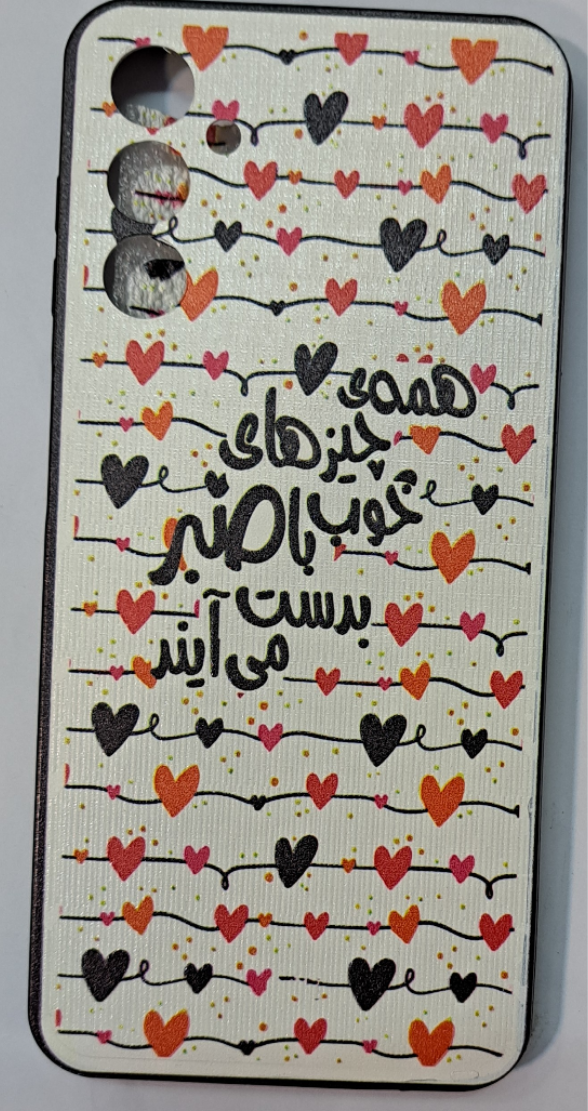 همه‌ی
چیزهای
خوب با صبر
بدست
می‌آیند